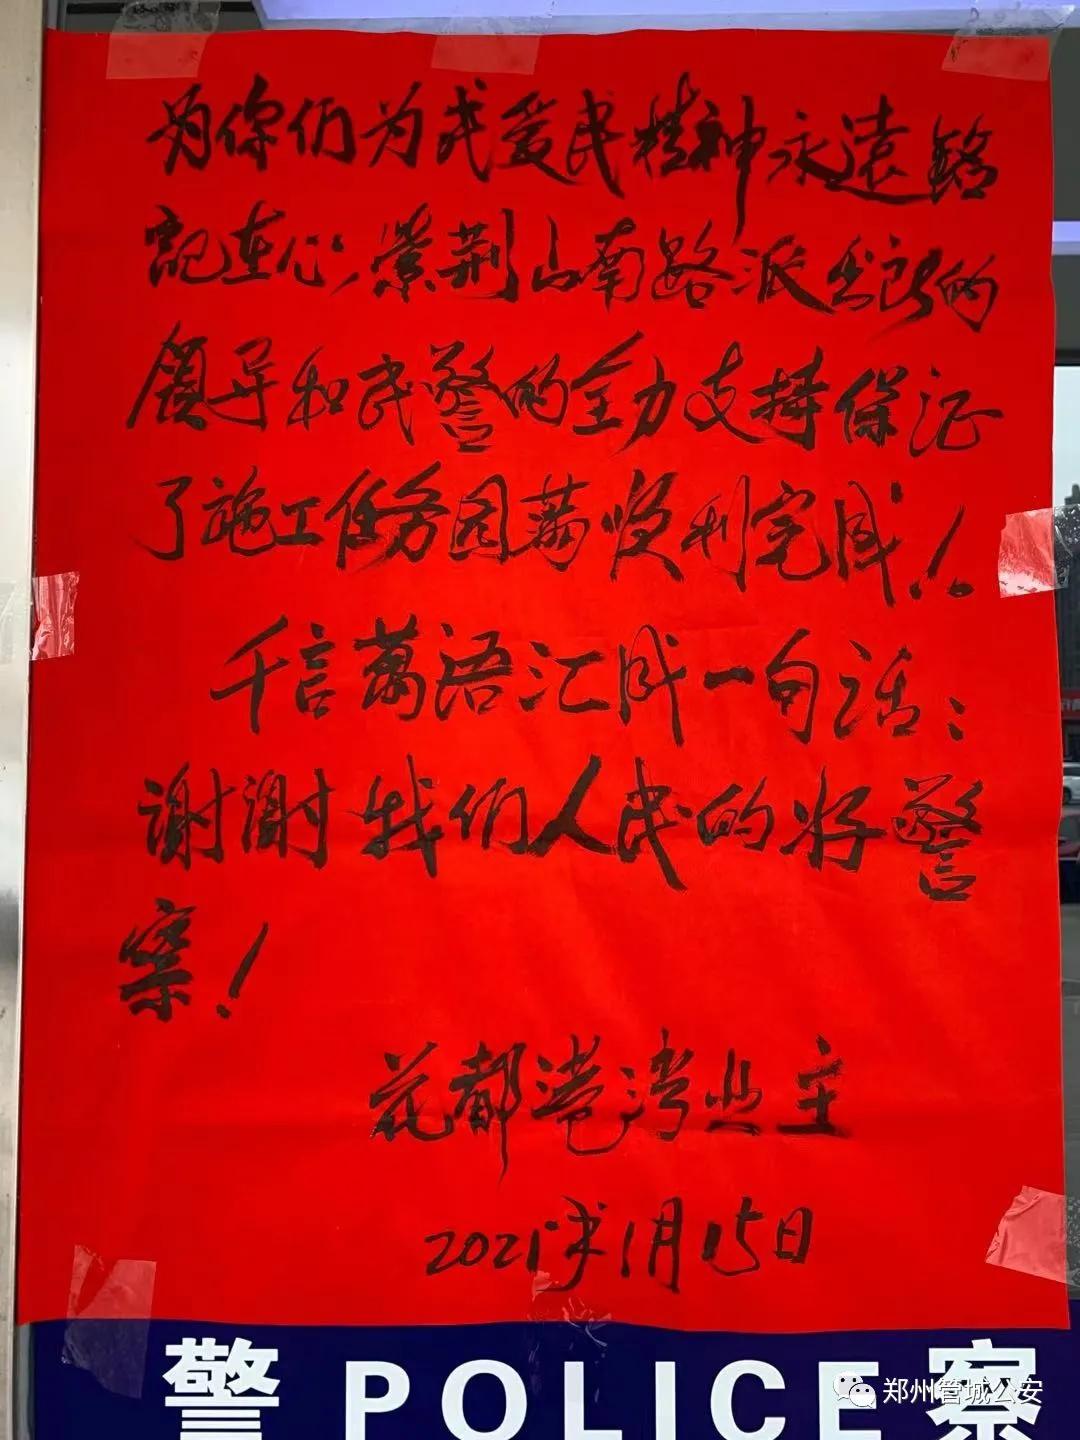 为你们为民爱民精神永遠銘
記在心，紫荆山南路派出所的
领导和民警的全力支持保证
了施工任务园满顺利完成！。
千言萬语汇成一句话：
谢谢我们人民的好警
察！
花都港湾业主
2021年1月15日
警 POLICE 察
郑州管城公安